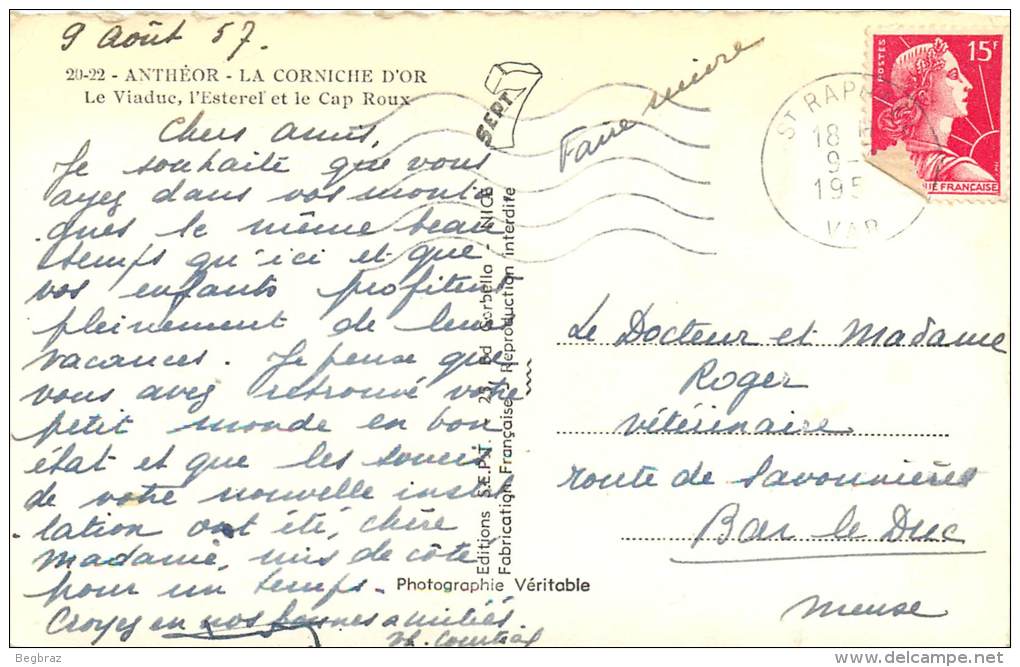 9 Août 57.
20-22 - ANTHÉOR - LA CORNICHE D'OR
Le Viaduc, l'Esterel et le Cap Roux
SEPT
Faire suivre
POSTES
15F
ST RAPH
18
9-
195
VAR
IE FRANÇAISE
Chers amis,
Je souhaite que vous
ayez dans vos monta
gnes le même beau
temps qu'ici et que
vos enfants profitent
pleinement de leurs
vacances. Je pense que
vous avez retrouvé votre
petit monde en bon
état et que les soucis
de votre nouvelle instal
lation ont été, chère
Madame, mis de côté
pour un temps.
Croyez en nos bonnes amitiés.
Editions S.E.P.T. - 25, Bd Gorbella - NICE
Fabrication Française - Reproduction interdite
Photographie Véritable
Le Docteur et Madame
Roger
Vétérinaire
route de Savonnières
Bar le Duc
Meuse
Begbraz